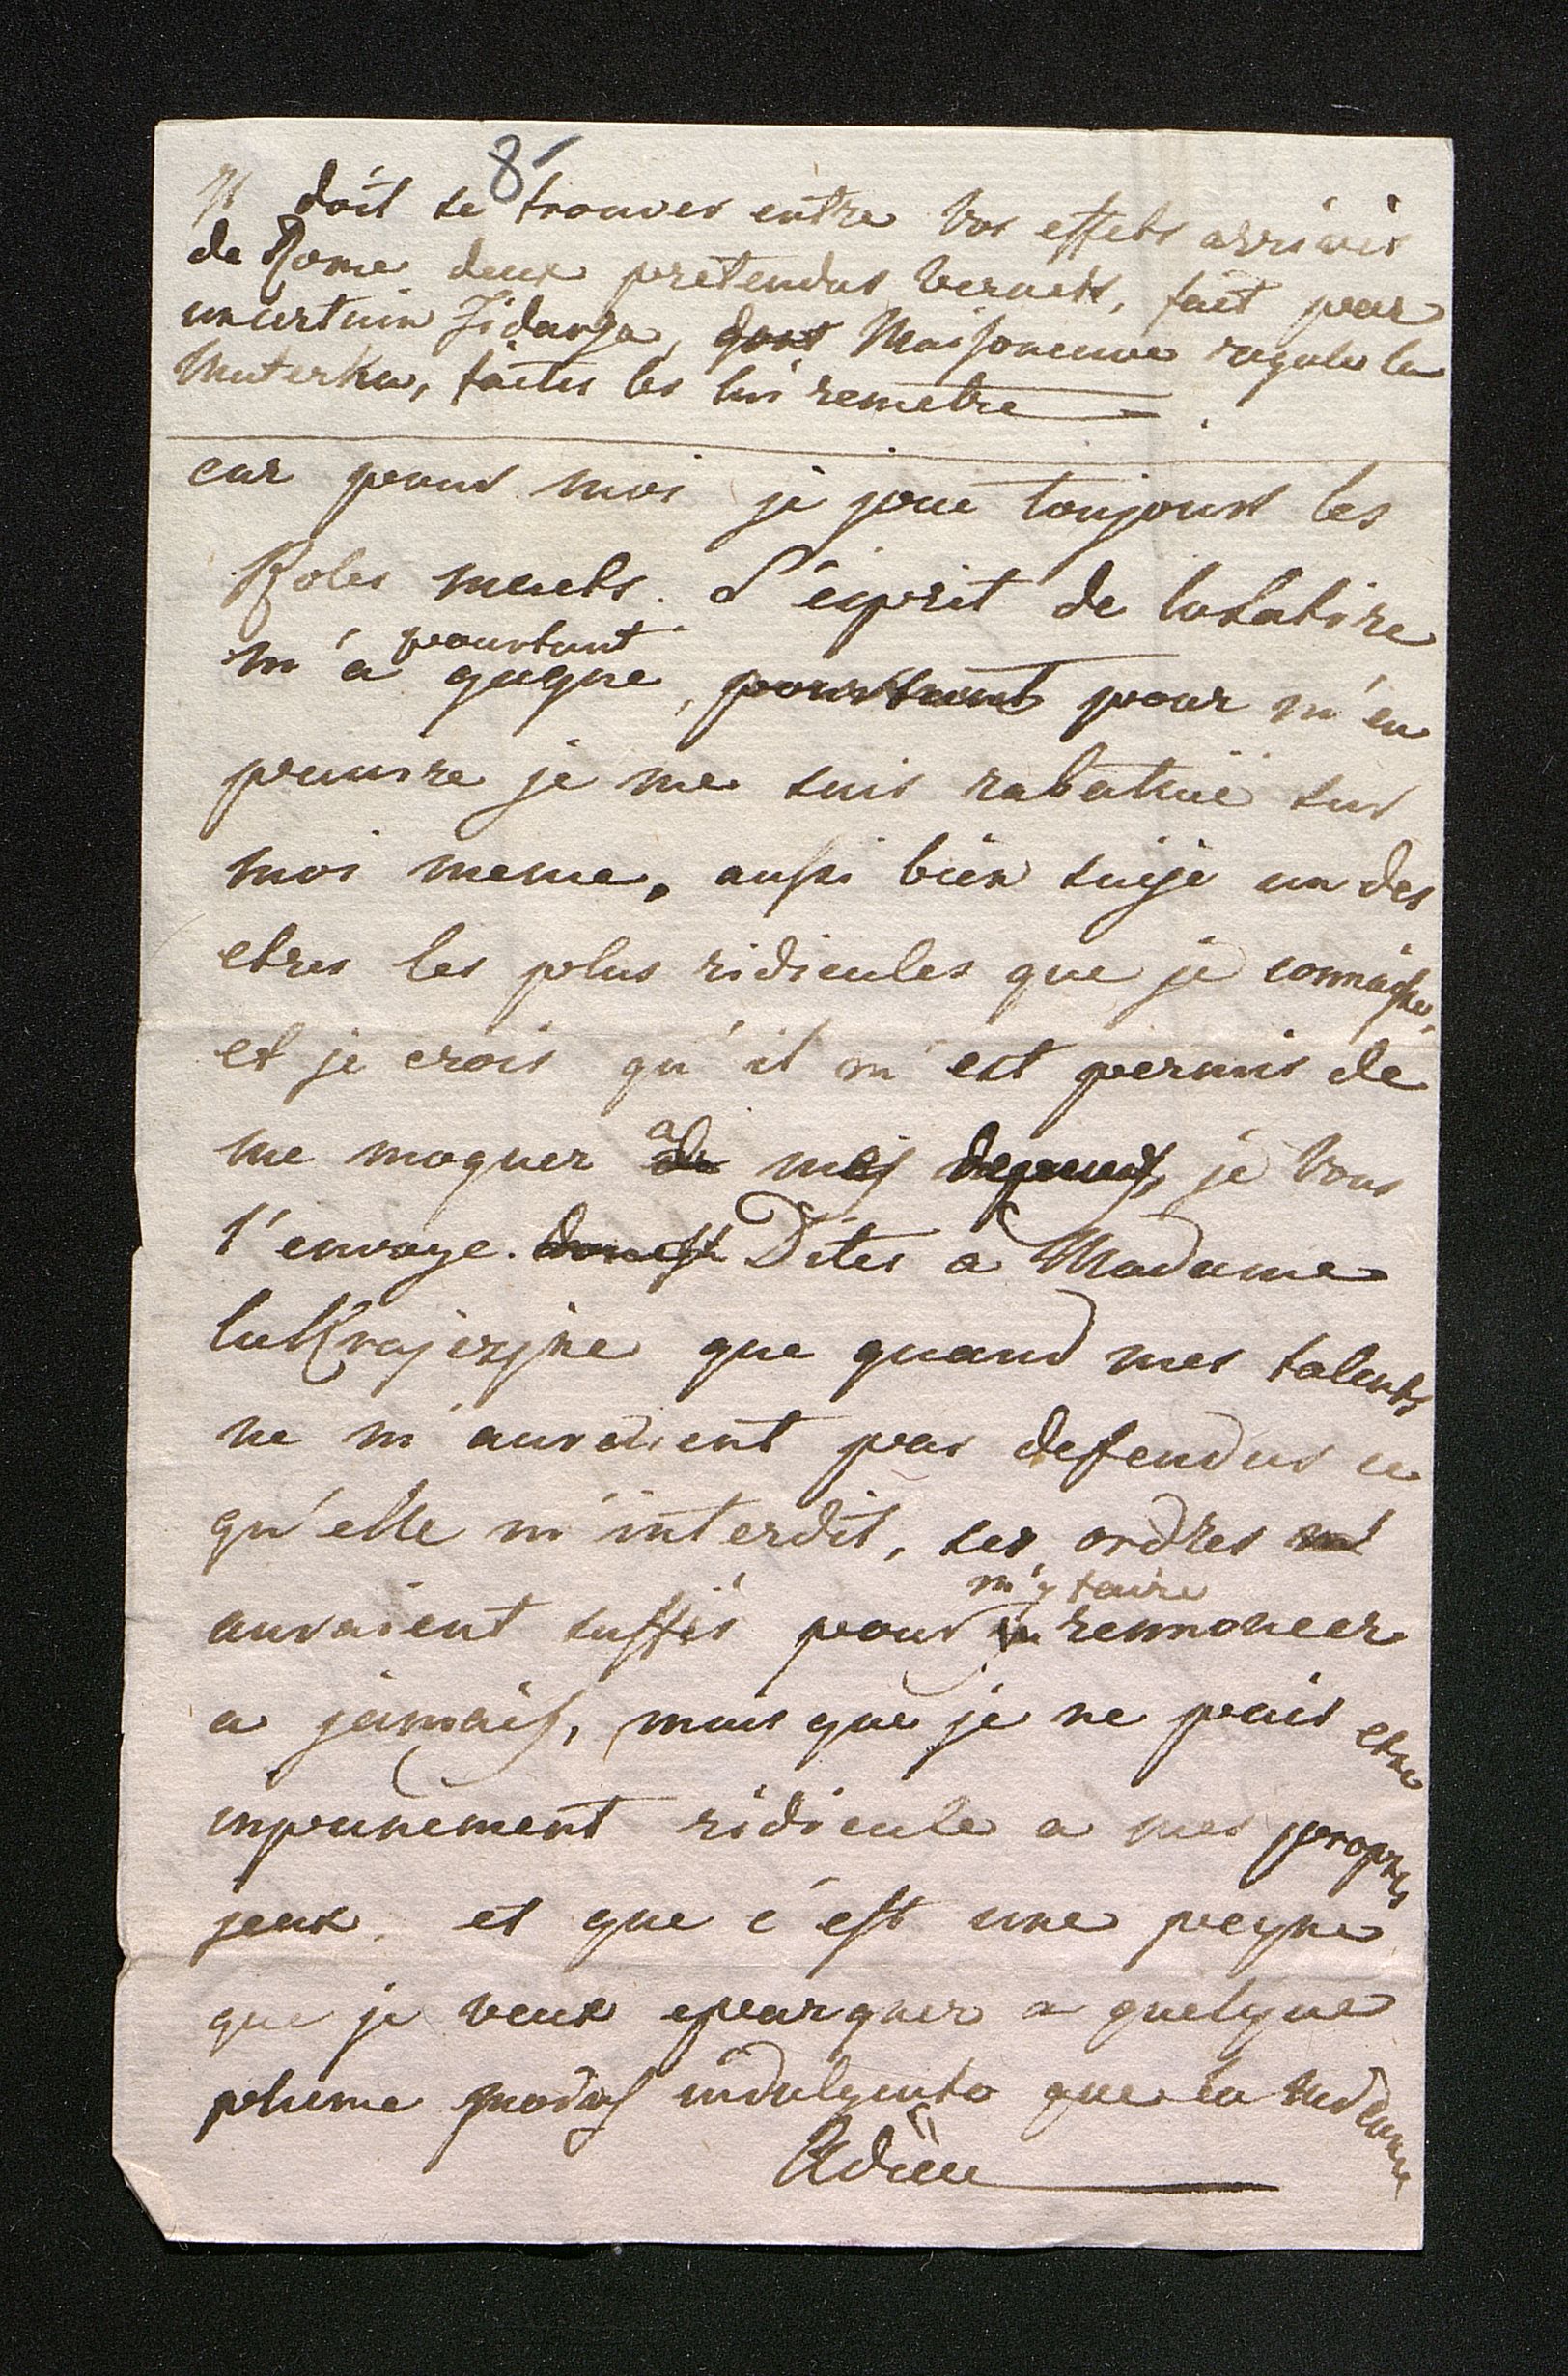 8
Il doit se trouver entre vos effets arrivés
de Rome deux pretendus vernets, fait par
uncertain Fidanza, dont Maisoneuve regale la
Materka, faites les lui remetre
car pour mois je joue toujours les
Roles muets. L'esprit de la satire
pourtant
m'a gagne, pourtant pour m'en
punire je me suis rabatue sur
moi meme, aussi bien suije un des
etres les plus ridicules que je connaisse,
et je crois qu'il m'est permis de
me moquer de mes je vous
l'envoye. Dites a Madame
la Krajczyne que quand mes talents
ne m'auraient pas defendus ce
qu'elle m'interdit, ses ordres m'
m'y faire
auraient suffis pour renoncer
a jamais, mais que je ne puis etre
inpunement ridicule a mes propres
jeux, et que c'est une peyne
que je veux epargner a quelque
plume moins indulgente que la
Adieu